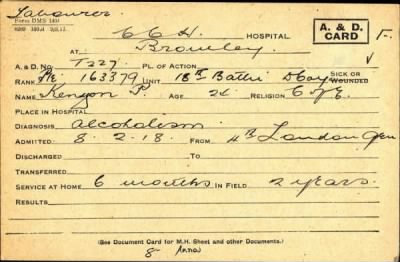 Labourer
Form DMS 1401
C C H. HOSPITAL A. & D. CARD
AT Bromley.
A. & D. No. T227 PL. OF ACTION
RANK Pte. 163379 UNIT 18th Battn D Coy SICK OR WOUNDED
NAME Kenyon P. AGE 24 RELIGION C of E.
PLACE IN HOSPITAL
DIAGNOSIS Alcoholism
ADMITTED 8. 2. 18. FROM 4th London Gen
DISCHARGED TO
TRANSFERRED
SERVICE AT HOME 6 months IN FIELD 2 years.
RESULTS
(See Document Card for M.H. Sheet and other Documents.)
8-